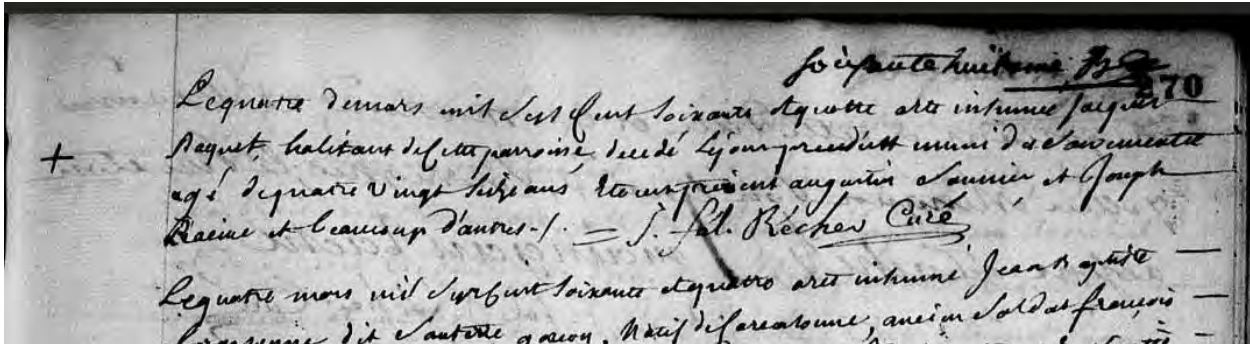 soixante huitieme
270
Le quatre de mars mil sept Cent soixante et quatre a ete inhumé Jacques
Paquet, habitant de Cette parroisse decedé le jour precedent muni des Sacrements
agé de quatre vingt seize ans Etoient presents augustin Saunier et Joseph
Racine et beaucoup d'autres./. = J. fel. Récher Curé
Le quatre mars mil sept Cent soixante et quatre a eté inhumé Jean Baptiste
dit Sauterre garçon, Natif de Carcasonne, ancien Soldat françois